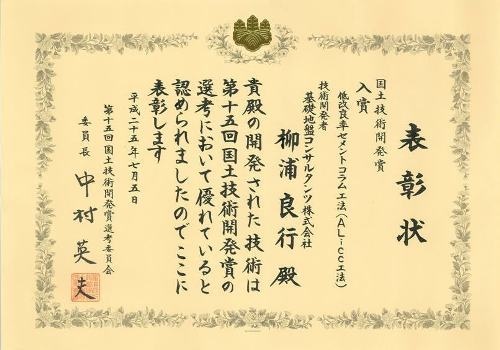 表彰状
国土技術開発賞
入賞
低改良率セメントコラム工法(ALiCC工法)
技術開発者
基礎地盤コンサルタンツ株式会社
柳浦良行殿
貴殿の開発された技術は
第十五回国土技術開発賞の
選考において優れていると
認められましたのでここに
表彰します
平成二十五年七月五日
第十五回国土技術開発賞選考委員会
委員長 中村英夫